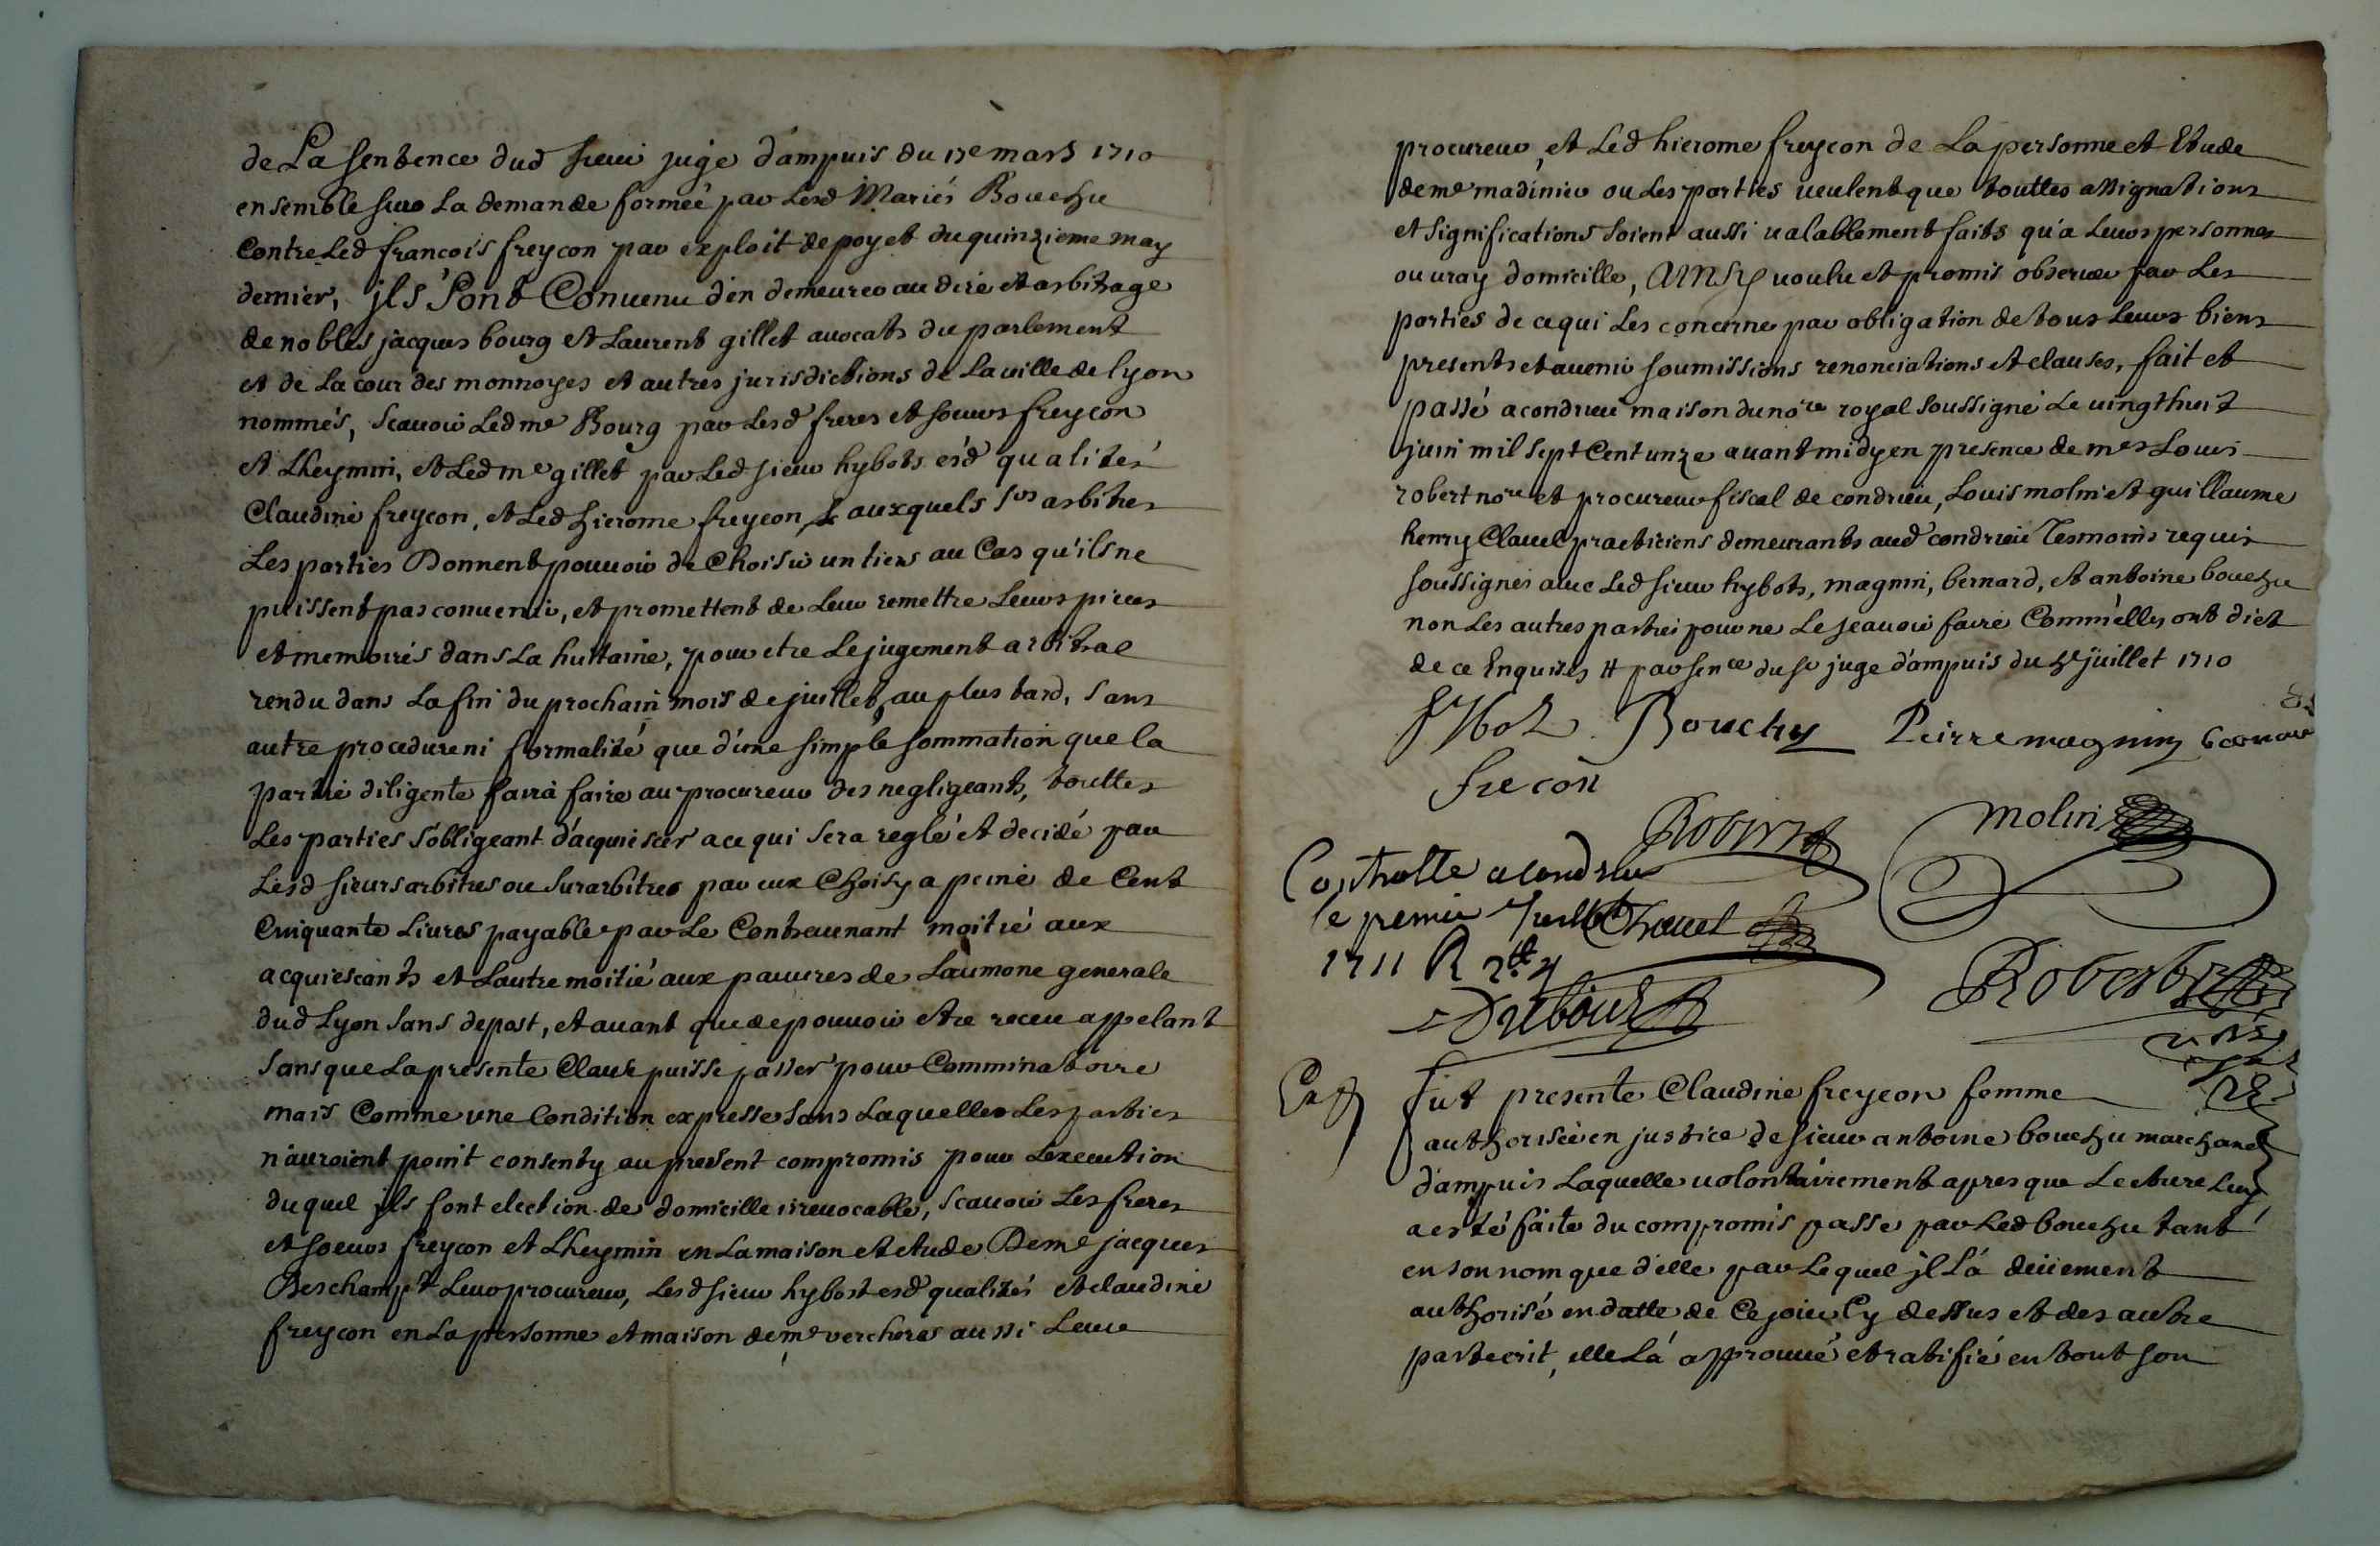 de La sentence dud sieur juge d'ampuis du 17e mars 1710
ensemble sur La demande formée par Lesd Mariés Bouchu
Contre Led francois freycon par exploit de poyet du quinzieme may
dernier, jls sont Convenu d'en demeurer au dire et arbitrage
de nobles jacques bourg et Laurent gillet avocats du parlement
et de La cour des monnoyes et autres jurisdictions de La ville de lyon
nommés, scavoir Led me Bourg par Lesd freres et soeurs freycon
et Lheymin, et Led me gillet par Led sieur hybots esd qualités
Claudine freycon, et Led hierome freycon auxquels srs arbitres
Les parties Donnent pouvoir de Choisir un tiers au Cas qu'ils ne
puissent pas convenir, et promettent de Leur remettre Leurs pieces
et memoires dans La huitaine, pour etre Le jugement arbitral
rendu dans La fin du prochain mois de juillet, au plus tard, sans
autre procedure ni formalité que d'une simple sommation que la
partie diligente faira faire au procureur des negligeants, touttes
Les parties s'obligeant d'acquiescer a ce qui sera reglé et decidé par
Lesd sieurs arbitres ou surarbitres par eux Choisy a peine de Cent
Cinquante Livres payable par Le Contrevenant moitié aux
acquiescants et Lautre moitié aux pauvres de Laumone generale
dud Lyon sans deport, et avant que de pouvoir etre receu appelant
sans que La presente Clause puisse passer pour Comminatoire
mais Comme une Condition expresse sans Laquelle Les parties
n'auroient point consenty au present compromis pour Lexecution
duquel jls font election de domicille irrevocable, scavoir Les freres
et soeurs freycon et Lheymin en La maison et etude De me jacques
Deschamps Leur procureur, Led sieur hybost esd qualités et claudine
freycon en La personne et maison de me vercheres aussi Leur
procureur, et Led hierome freycon de La personne et Etude
de me madinier ou Les parties veulent que touttes assignations
et significations soient aussi valablement faits qu'a Leurs personnes
ou vray domicille, AINSY voulu et promis observer par Les
parties de ce qui Les concerne par obligation de tous Leurs biens
presents et avenir soumissions renonciations et clauses, fait et
passé a condrieu maison du nore royal soussigné Le vingt huit
juin mil sept Cent unze avant midy en presence de mes Louis
robert nore et procureur fiscal de condrieu, Louis molin et guillaume
henry Clavel practiciens demeurants aud condrieu Tesmoins requis
soussignés avec Led sieur hybots, magnin, bernard, et antoine bouchu
non Les autres parties pour ne Le scavoir faire Comm'elles ont dict
de ce Enquises # par sence du sr juge d'ampuis du juillet 1710
Bouchu Pierre magnin
frecon
Robert molin
Controlle a Condrieu
le premier Juillet Clavel
1711 R
Dubourg Robert
Et fut presente Claudine freycon femme
authorisée en justice de sieur antoine bouchu marchand
d'ampuis Laquelle volontairement apres que Lecture Luy
a esté faite du compromis passe par Led bouchu tant
en son nom que d'elle par Lequel jl L'a deüement
authorisé en datte de Ce jour Cy dessus et des autre
part ecrit, elle L'a approuvé et ratifié en tout son